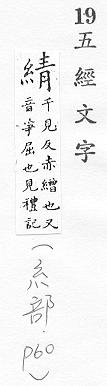 19
五經文字
綪
千見反赤繒也又
音箏屈也見禮記
(糸部. p60)